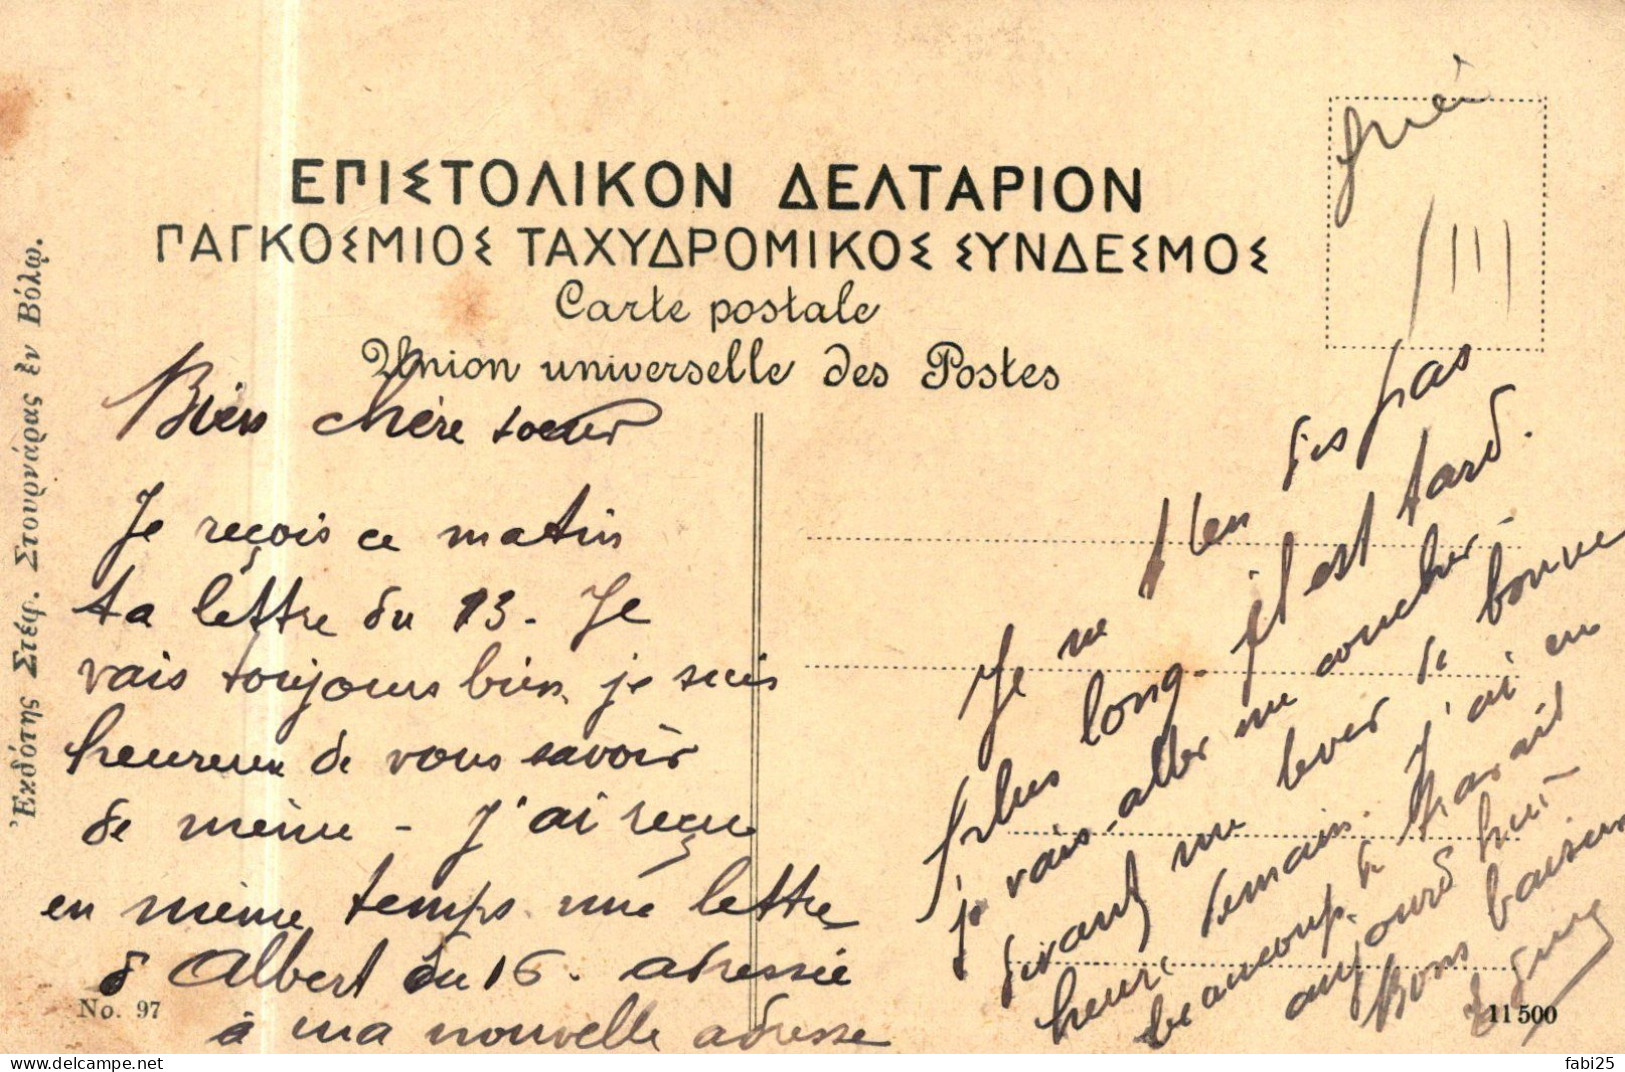 ΕΠΙΣΤΟΛΙΚΟΝ ΔΕΛΤΑΡΙΟΝ
ΠΑΓΚΟΣΜΙΟΣ ΤΑΧΥΔΡΟΜΙΚΟΣ ΣΥΝΔΕΣΜΟΣ
Carte postale
Union universelle des Postes
Ἐκδότης Στέφ. Στουρνάρας ἐν Βόλῳ.
Bien chère soeur
Je reçois ce matin
ta lettre du 13. Je
vais toujours bien je suis
heureux de vous savoir
de même - J'ai reçu
en même temps une lettre
d'Albert du 16. adressée
à ma nouvelle adresse
Je ne t'en dis pas
plus long. Il est tard.
je vais aller me coucher
devant me lever de bonne
heure demain. J'ai eu
beaucoup de travail
aujourd'hui
Bons baisers
No. 97
11500
fabi25